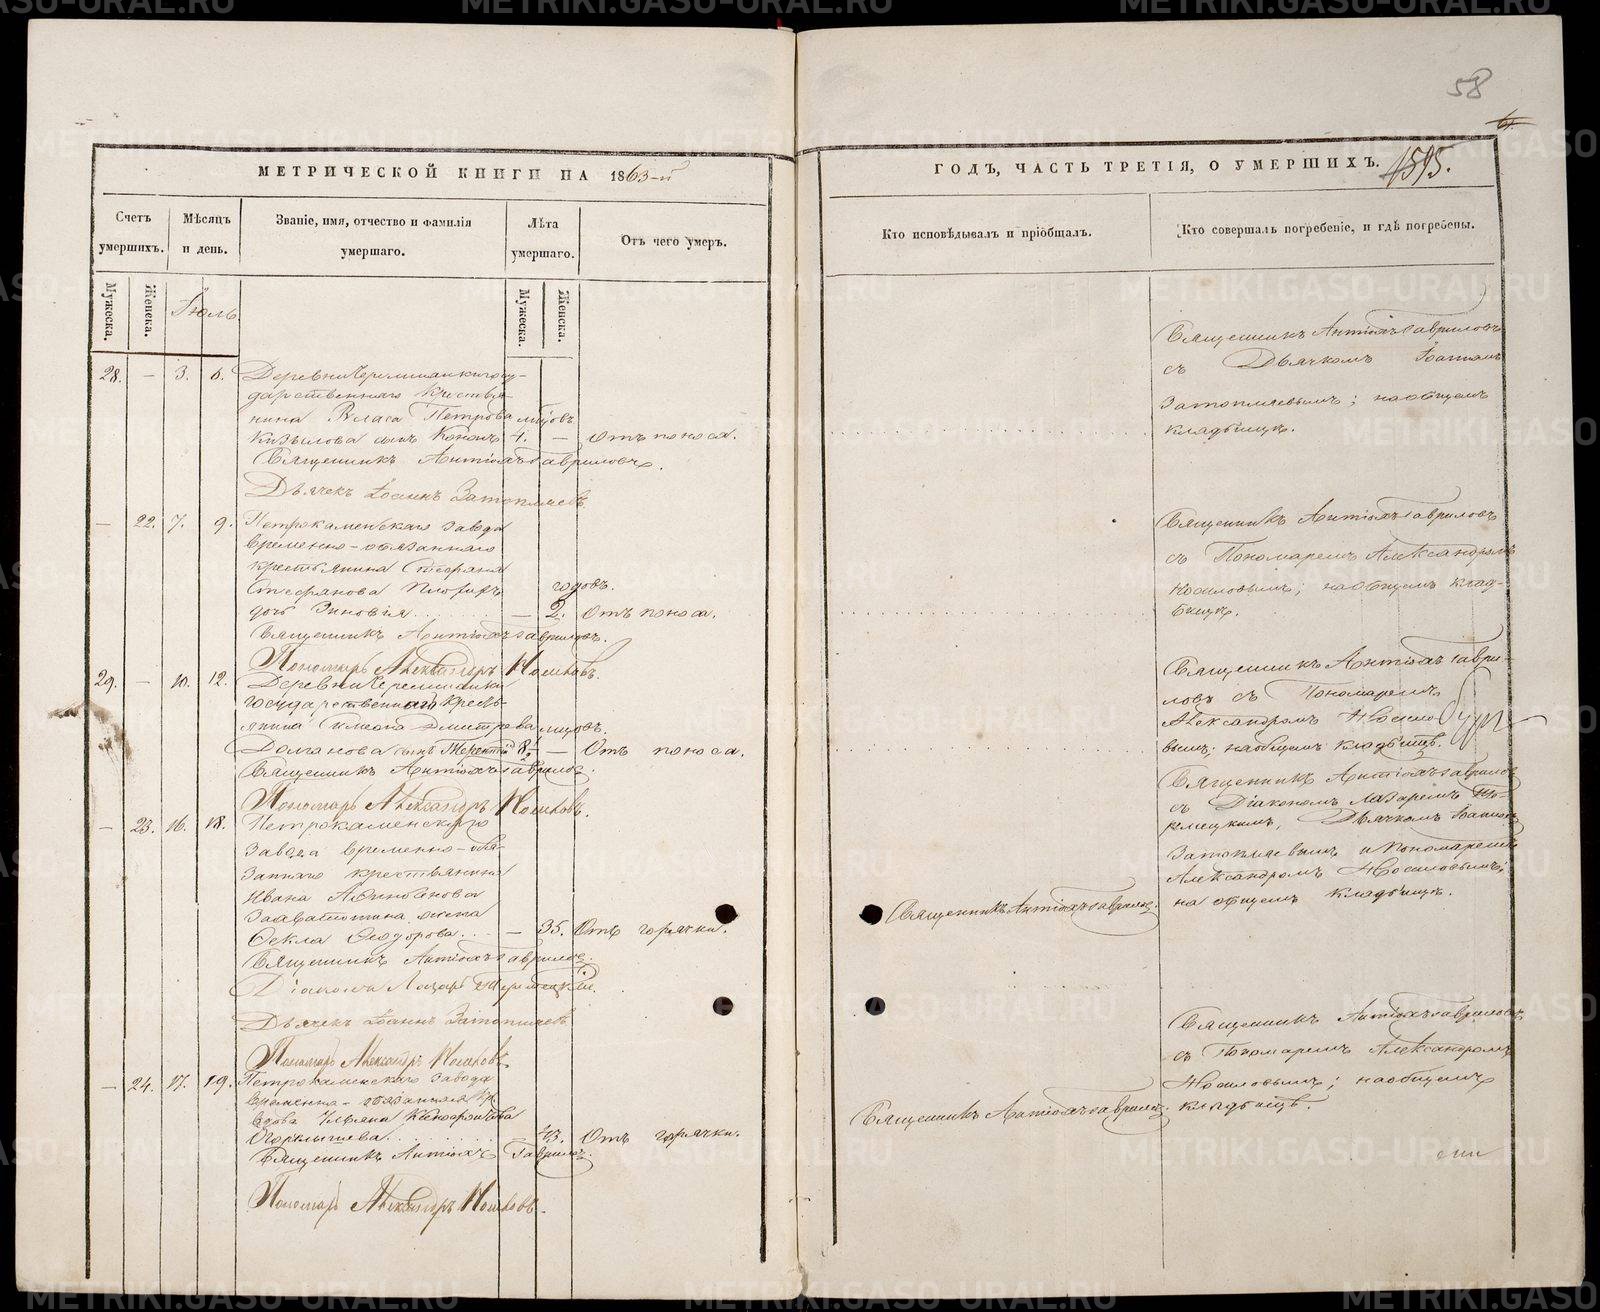 58
МЕТРИЧЕСКОЙ КНИГИ НА 1863-й
ГОДЪ, ЧАСТЬ ТРЕТІЯ, О УМЕРШИХЪ.
1595.
Счетъ умершихъ.
Мѣсяцъ и день.
Званіе, имя, отчество и фамилія умершаго.
Лѣта умершаго.
Отъ чего умеръ.
Кто исповѣдывалъ и пріобщалъ.
Кто совершалъ погребеніе, и гдѣ погребены.
Мужеска.
Женска.
Іюль
Мужеска.
Женска.
28. — 3. 6. Деревни Черемшанки госу-
дарственнаго крестья-
нина Власа Петрова мѣсяцовъ
сынъ Кононъ 4. — Отъ поноса.
Священникъ Антіохъ Гавриловъ.
Дьячекъ Іоаннъ Затопляевъ
Священникъ Антіохъ Гавриловъ
съ Дьячкомъ Іоанномъ
Затопляевымъ; на общемъ
кладбищѣ.
— 22. 7. 9. Петрокаменскаго завода
временно-обязаннаго
крестьянина Стефана
Стефанова годовъ.
дочь Зиновія — 2. Отъ поноса.
Священникъ Антіохъ Гавриловъ.
Пономарь Александръ Носиловъ.
Священникъ Антіохъ Гавриловъ
съ Пономаремъ Александромъ
Носиловымъ; на общемъ клад-
бищѣ.
29. — 10. 12. Деревни Черемшанки
государственнаго кресть-
янина Дмитрева мѣсяцовъ.
Долганова сынъ 8. — Отъ поноса.
Священникъ Антіохъ Гавриловъ.
Пономарь Александръ Носиловъ.
Священникъ Антіохъ Гаври-
ловъ съ Пономаремъ
Александромъ Носило
вымъ; на общемъ кладбищѣ.
— 23. 16. 18. Петрокаменскаго
завода временно-обя-
заннаго крестьянина
Ивана
жена
Ѳекла Ѳеодорова — 35. Отъ горячки.
Священникъ Антіохъ Гавриловъ.
Діаконъ Лазарь
Дьячекъ Іоаннъ Затопляевъ
Пономарь Александръ Носиловъ
Священникъ Антіохъ Гавриловъ.
Священникъ Антіохъ Гавриловъ
съ Діакономъ Лазаремъ
Дьячкомъ Іоанномъ
Затопляевымъ и Пономаремъ
Александромъ Носиловымъ;
на общемъ кладбищѣ.
— 24. 17. 19. Петрокаменскаго завода
временно-обязанная
вдова Ульяна
43. Отъ горячки.
Священникъ Антіохъ Гавриловъ.
Пономарь Александръ Носиловъ.
Священникъ Антіохъ Гавриловъ.
Священникъ Антіохъ Гавриловъ
съ Пономаремъ Александромъ
Носиловымъ; на общемъ
кладбищѣ.
METRIKI.GASO-URAL.RU